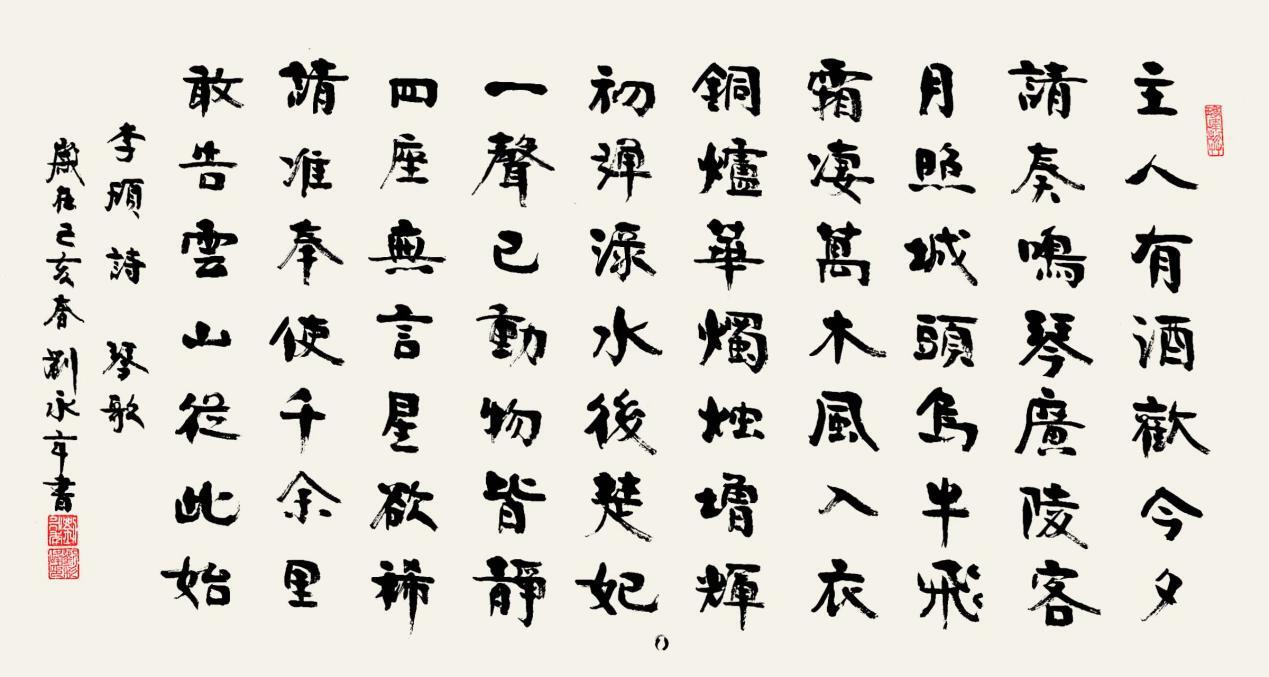 主人有酒歡今夕
請奏鳴琴廣陵客
月照城頭烏半飛
霜凄萬木風入衣
銅爐華燭烛增輝
初彈渌水後楚妃
一聲已動物皆靜
四座無言星欲稀
請准奉使千余里
敢告雲山従此始
李頎詩 琴歌
歲在己亥春劉永年書